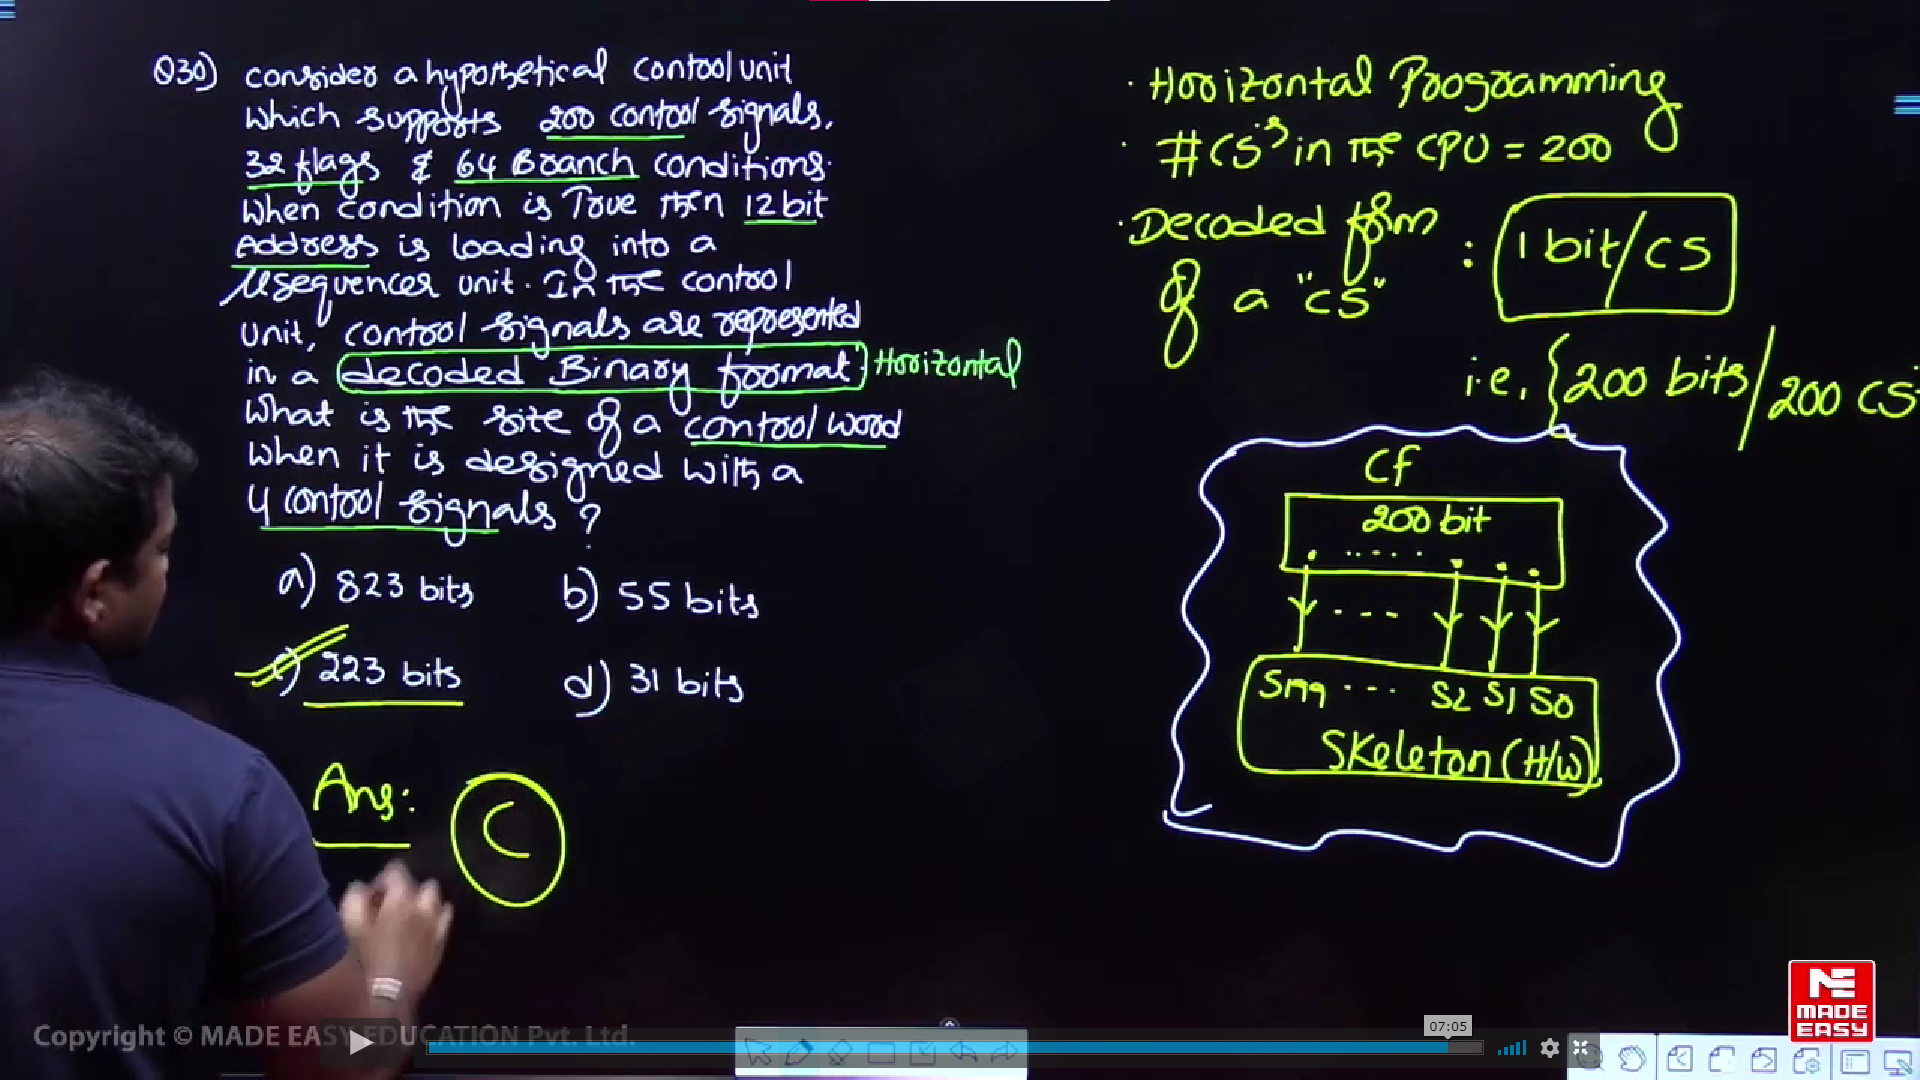 Q30) consider a hypothetical control unit
which supports 200 control signals,
32 flags & 64 Branch conditions.
When condition is True then 12 bit
Address is loading into a
μsequencer unit. In the control
unit, control signals are represented
in a decoded Binary format. Horizontal
What is the size of a control word
when it is designed with a
4 control signals?
a) 823 bits b) 55 bits
c) 223 bits d) 31 bits
Ans: C
· Horizontal Programming
· #CS's in the CPU = 200
· Decoded form
of a "CS" : 1 bit/CS
i.e, {200 bits/200 CS
CF
200 bit
S199 --- S2 S1 S0
Skeleton (H/W)
Copyright © MADE EASY EDUCATION Pvt. Ltd.
07:05
ME
MADE
EASY